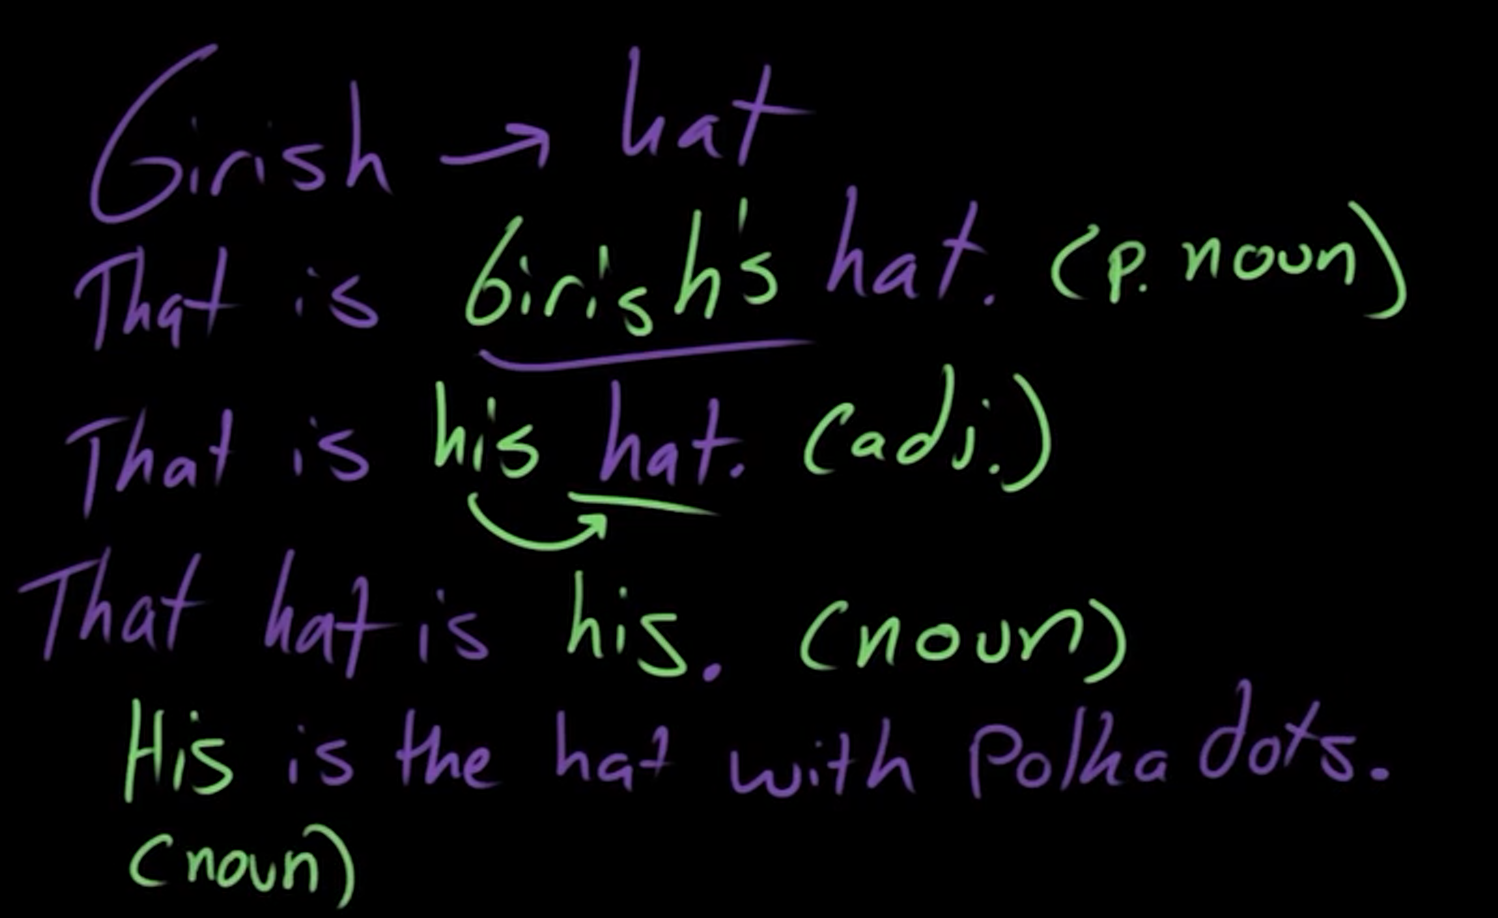 Girish → hat
That is Girish's hat. (p. noun)
That is his hat. (adj.)
That hat is his. (noun)
His is the hat with polka dots.
(noun)